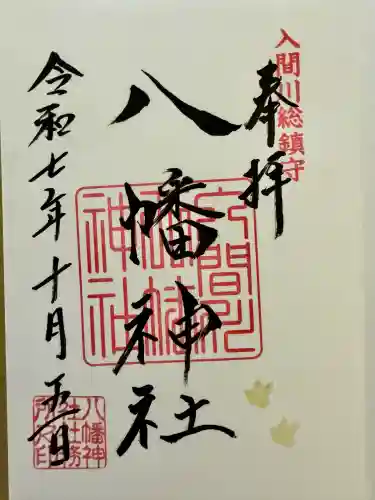 入間川総鎮守
奉拝
八幡神社
令和七年十月五日
入間川
八幡神社
八幡神
社社務
所之印